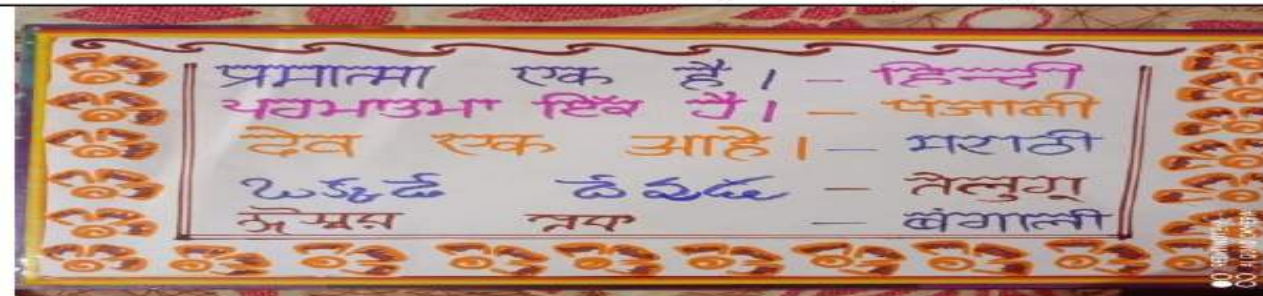 प्रमात्मा एक है। - हिन्दी
ਪਰਮਾਤਮਾ ਇੱਕ ਹੈ। - पंजाबी
देव एक आहे। - मराठी
ఒక్కడే దేవుడు - तेलुगु
ঈশ্বর এক - बंगाली